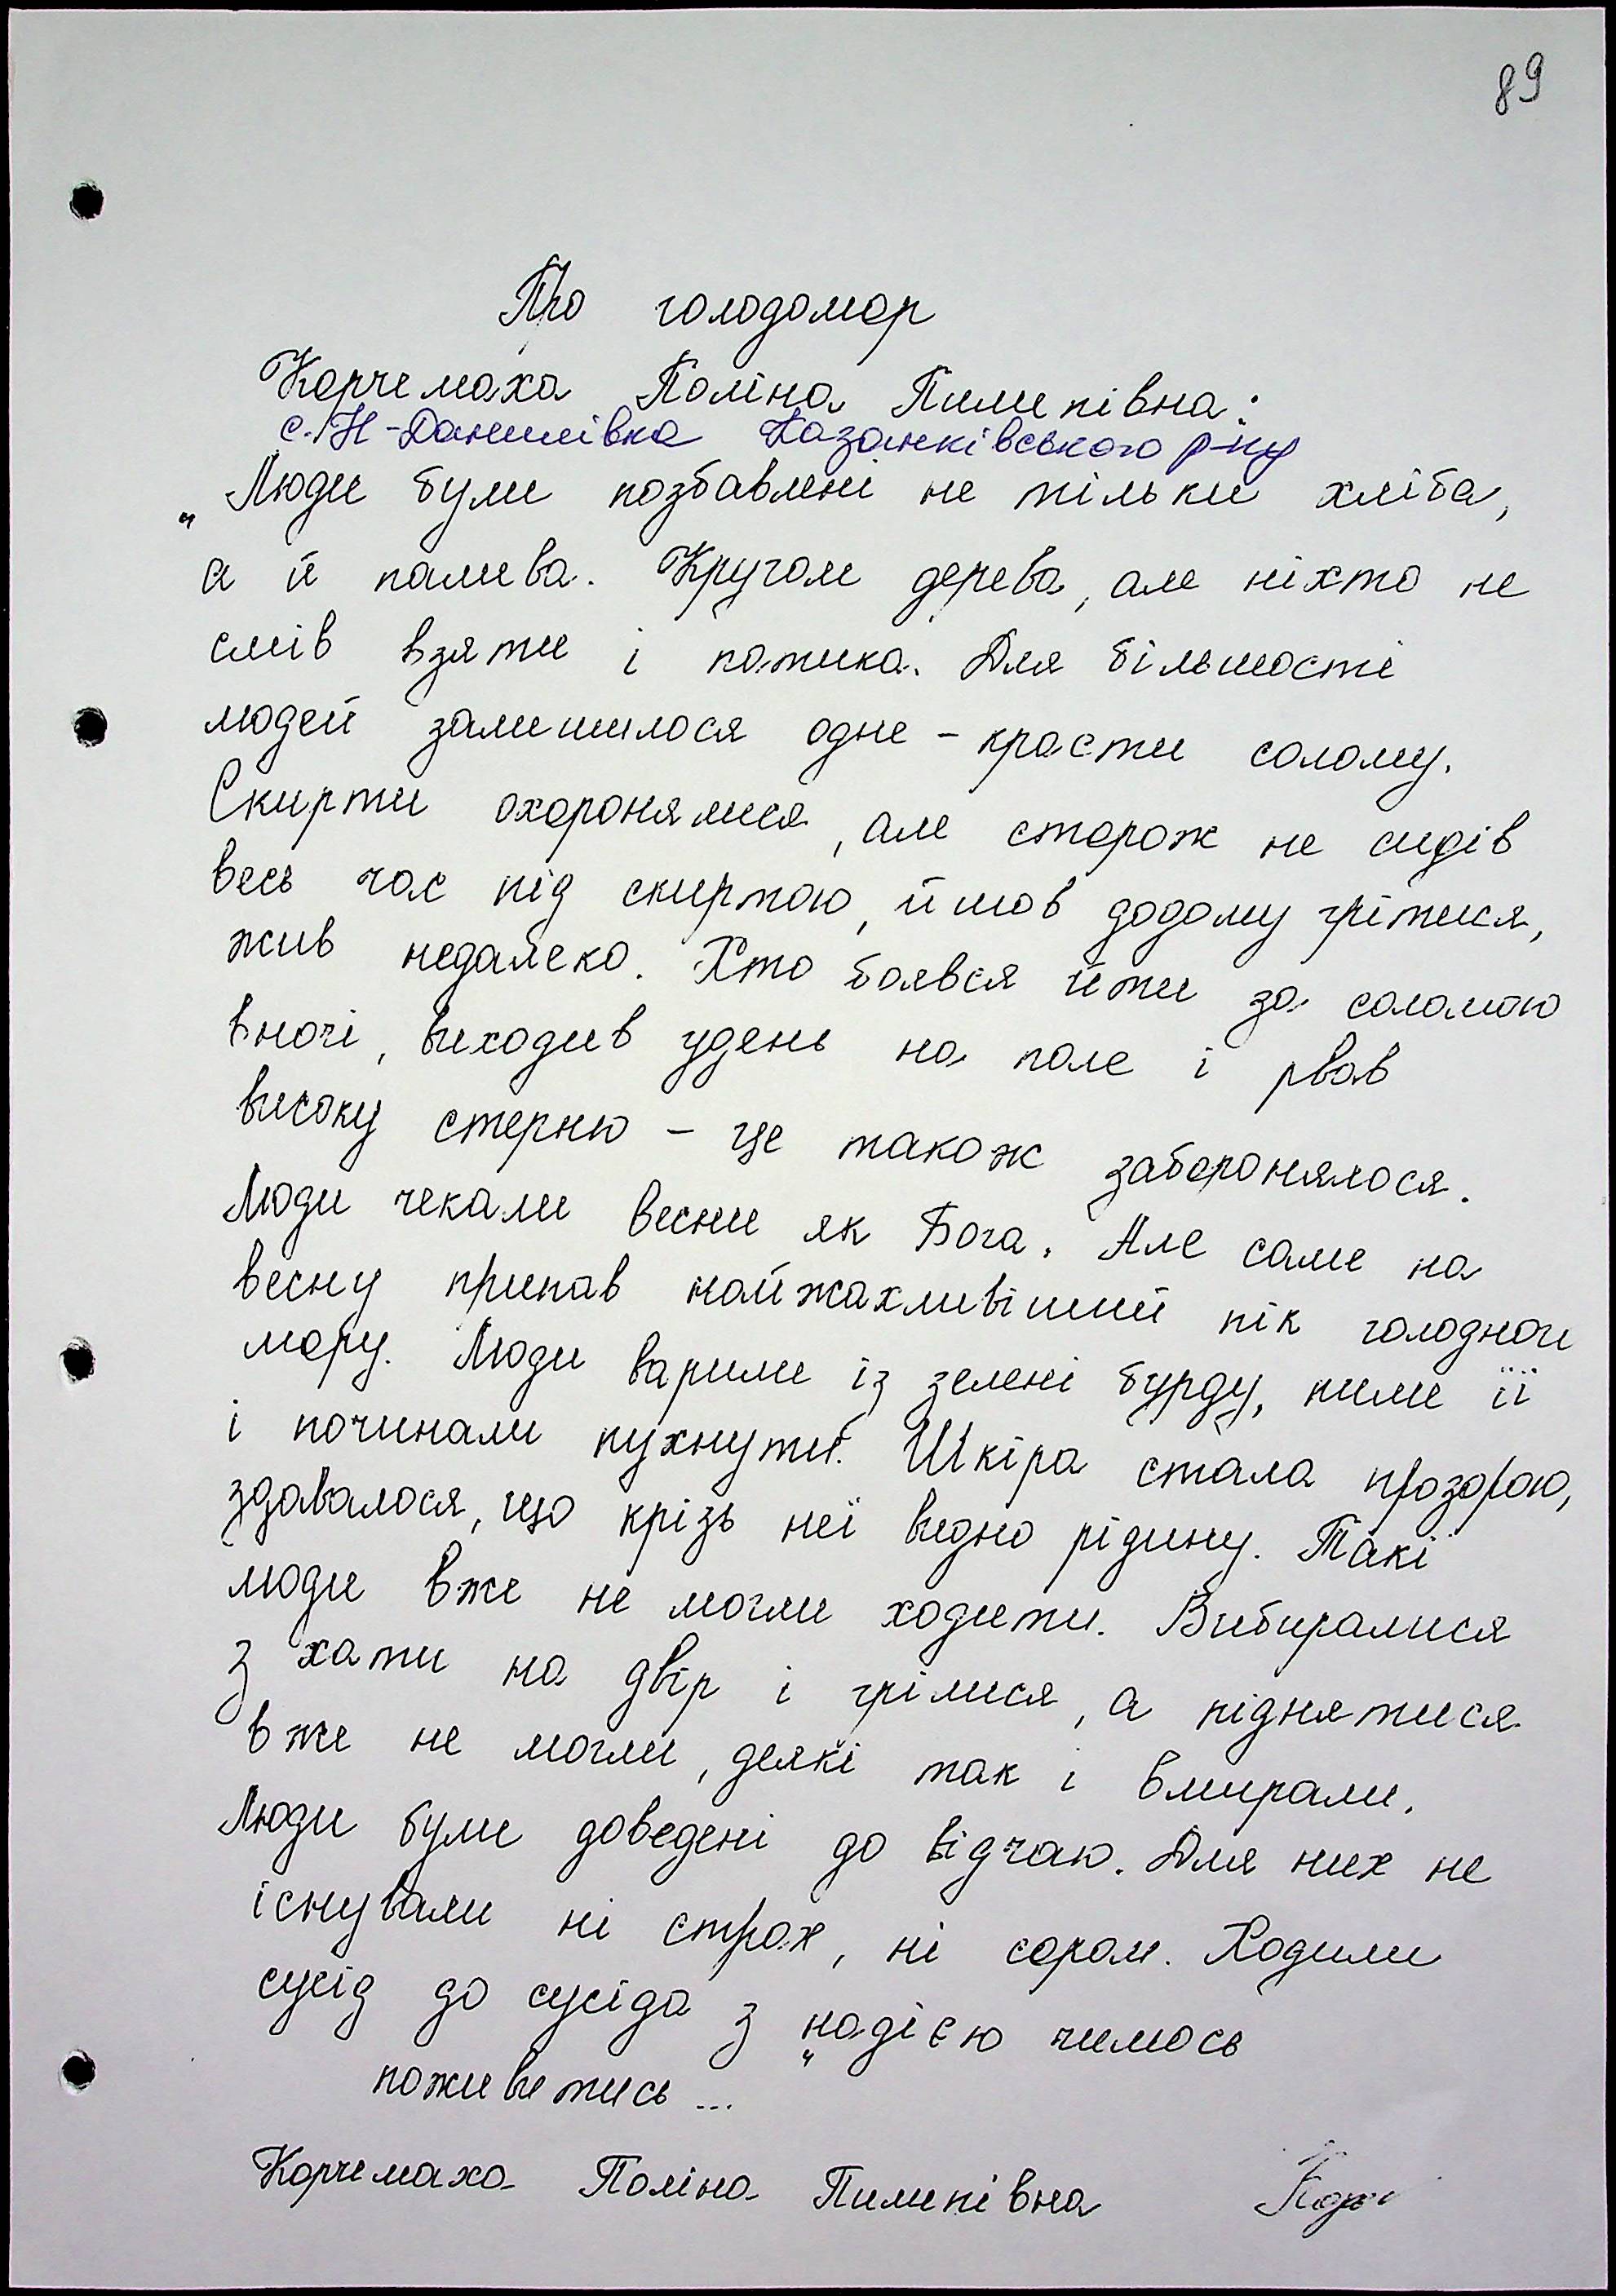 89
Про голодомор
Корчемаха Поліна Пилипівна:
с. Н-Данилівка Казанківського р-ну
„Люди були позбавлені не тільки хліба,
а й палива. Кругом дерева, але ніхто не
смів взяти і патика. Для більшості
людей залишилося одне - красти солому.
Скирти охоронялися, але сторож не сидів
весь час під скиртою, йшов додому грітися,
жив недалеко. Хто боявся йти за соломою
вночі, виходив удень на поле і рвав
високу стерню - це також заборонялося.
Люди чекали весни як Бога. Але саме на
весну припав найжахливіший пік голодного
мору. Люди варили із зелені бурду, пили її
і починали пухнути. Шкіра стала прозорою,
здавалося, що крізь неї видно рідину. Такі
люди вже не могли ходити. Вибиралися
з хати на двір і грілися, а піднятися
вже не могли, деякі так і вмирали.
Люди були доведені до відчаю. Для них не
існували ні страх, ні сором. Ходили
сусід до сусіда з надією чимось
поживитись..."
Корчемаха Поліна Пилипівна